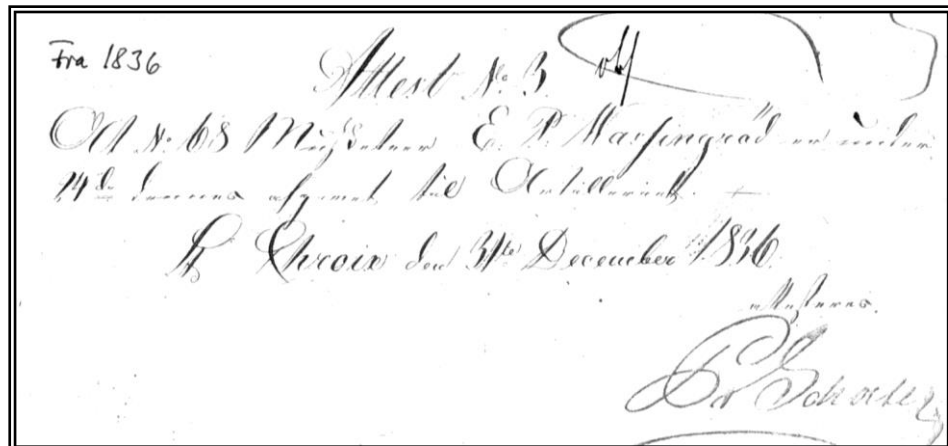 Fra 1836
Attest No 3.
At No: 68 Musketeer E. P. Massingrød er under
24de dennes afgaaet til Artilleriet.
St Chroix den 31te December 1836.
attesteres.